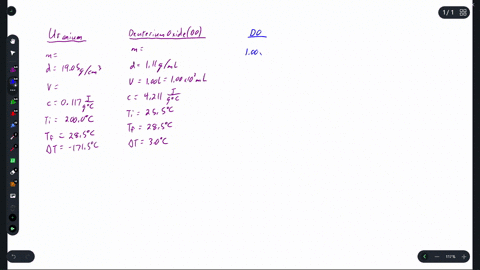 Uranium
m =
d = 19.05 g/cm³
V =
c = 0.117 J/g°C
Ti = 200.0°C
Tf = 28.5°C
ΔT = -171.5°C
Deuterium Oxide (DO)
m =
d = 1.11 g/mL
V = 1.00L = 1.00x10³ mL
c = 4.211 J/g°C
Ti = 25.5°C
Tf = 28.5°C
ΔT = 3.0°C
DO
1.00
1 / 1